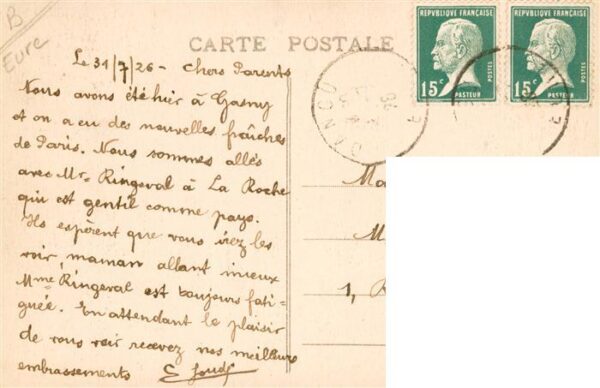 B
Eure
CARTE POSTALE
REPUBLIQUE FRANÇAISE
15c
POSTES
PASTEUR
REPUBLIQUE FRANÇAISE
15c
POSTES
PASTEUR
Le 31/7/26 - Chers Parents
Nous avons été hier à Gasny
et on a eu des nouvelles fraîches
de Paris. Nous sommes allés
avec Mr Ringeval à La Roche
qui est gentil comme pays.
Ils espèrent que vous irez les
voir, maman allant mieux
Mme Ringeval est toujours fati-
guée. En attendant le plaisir
de vous voir recevez nos meilleurs
embrassements
Ma
M
1,